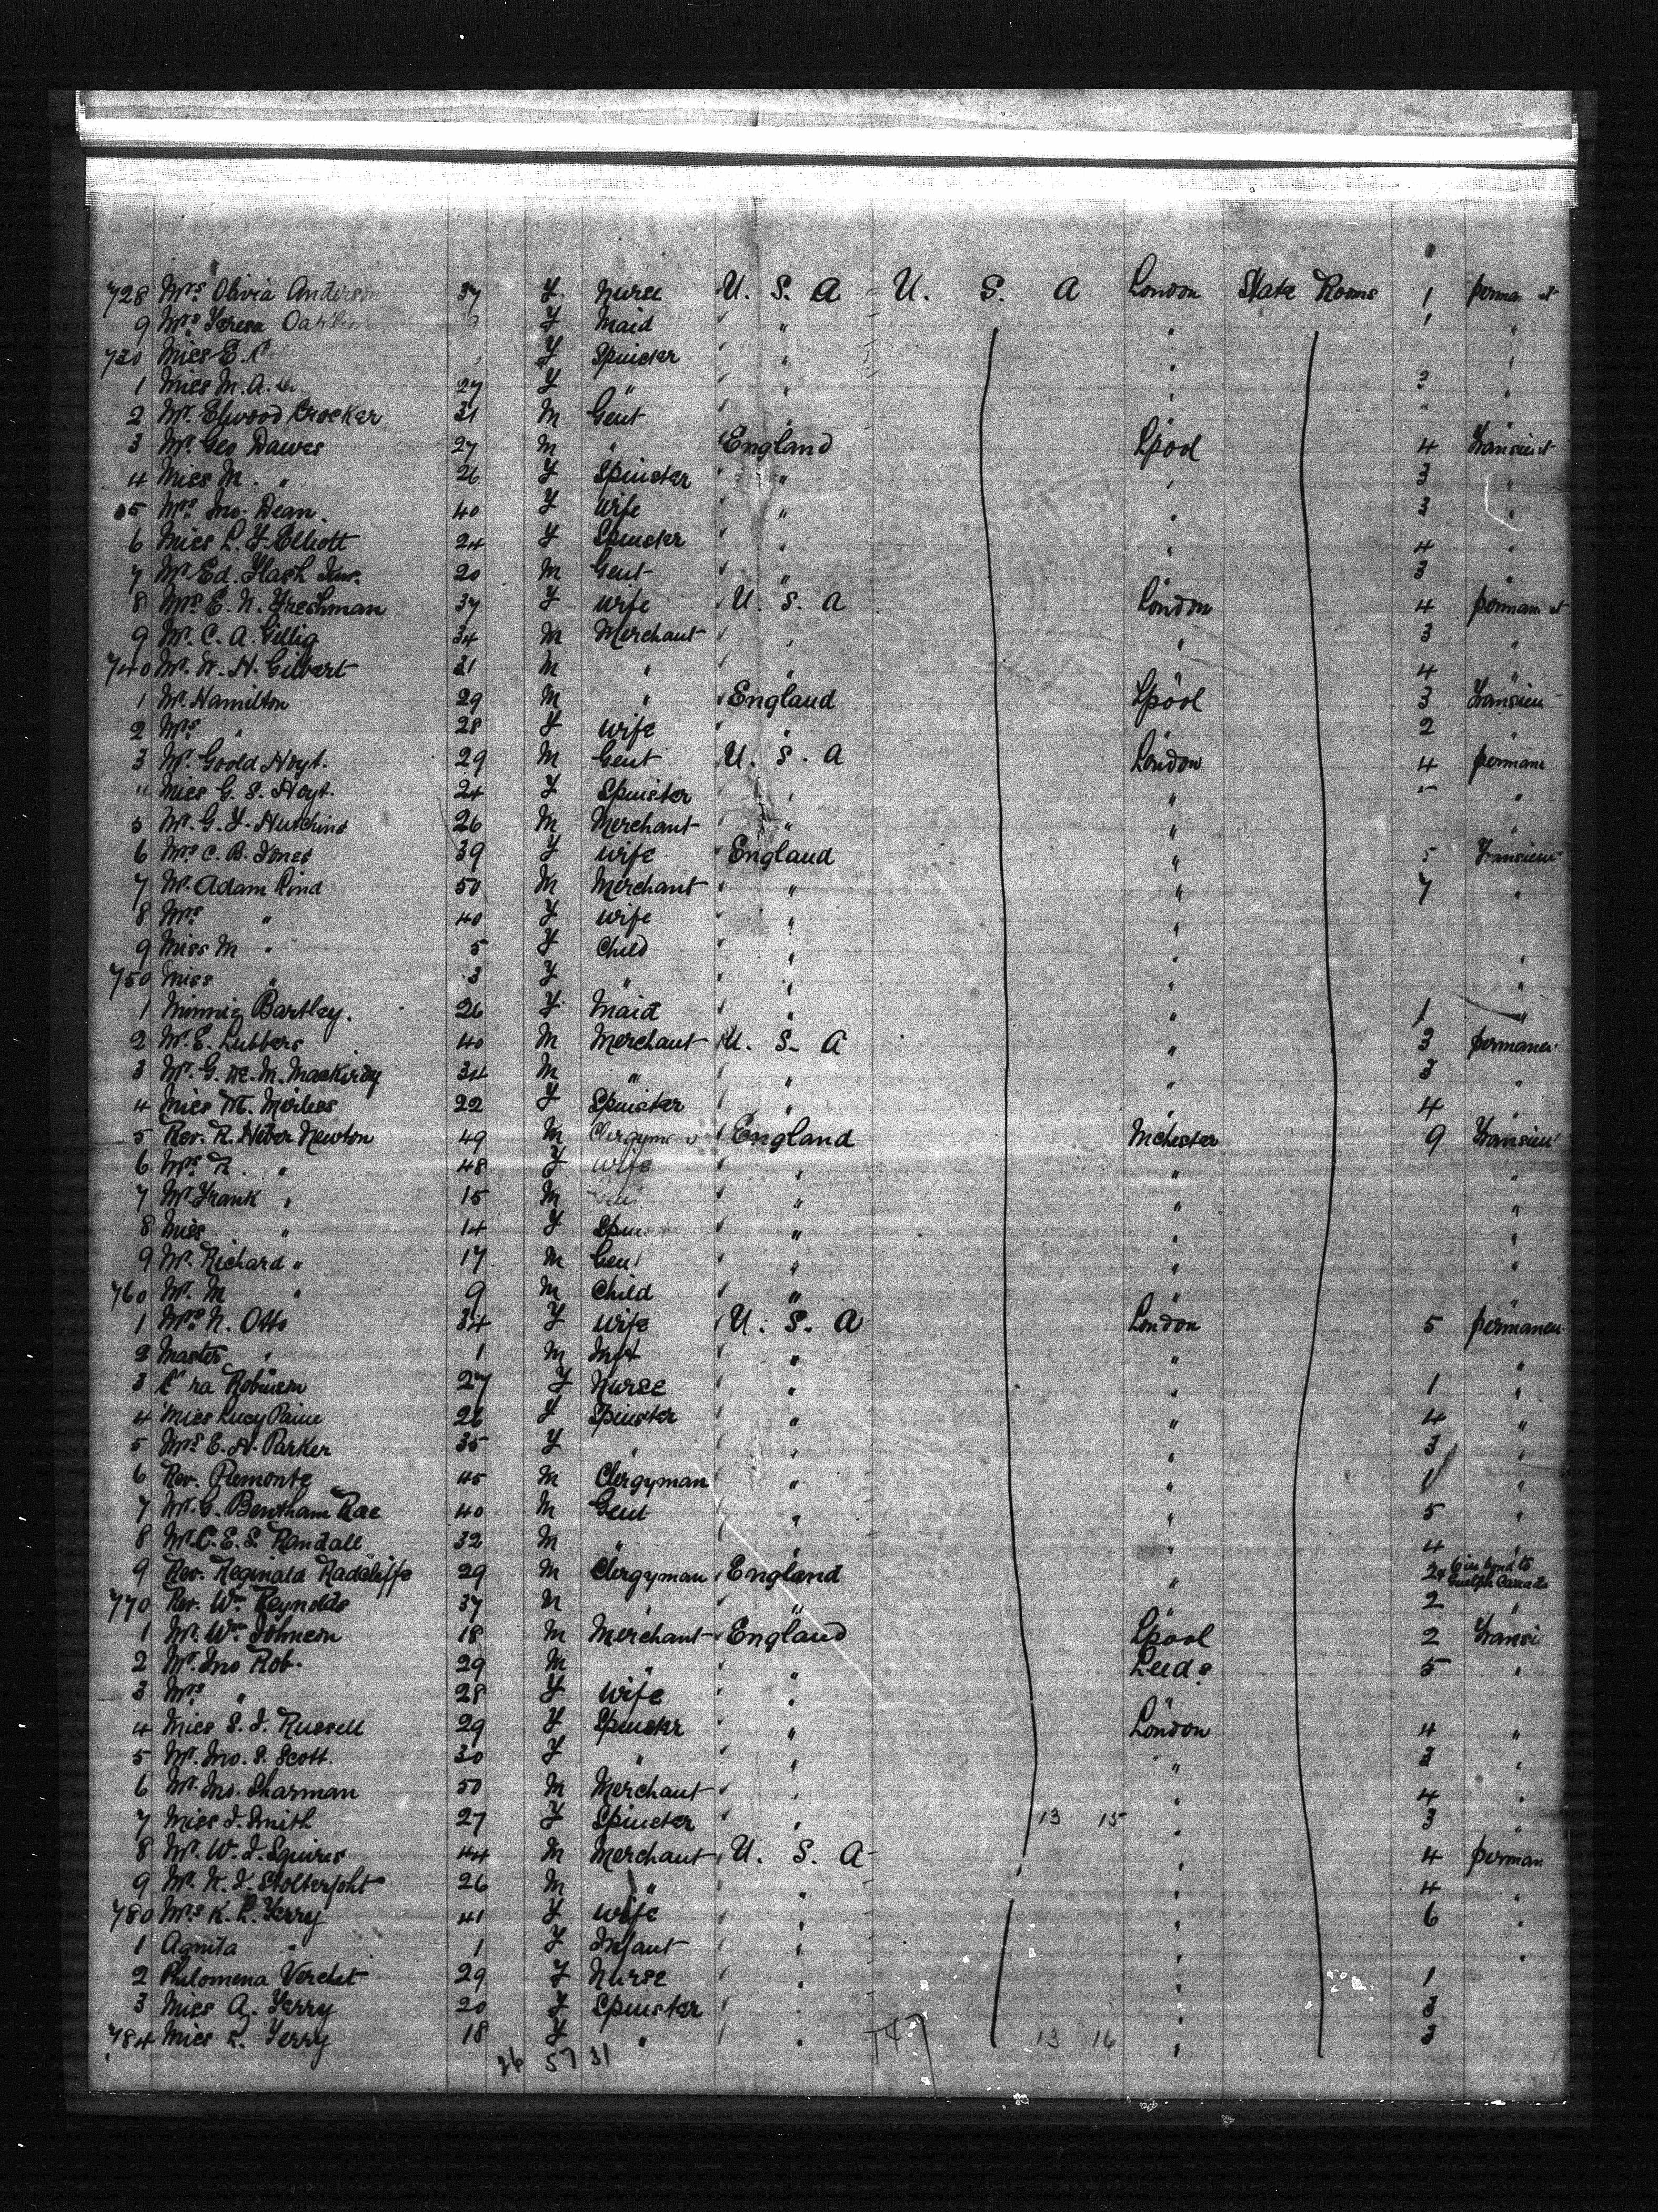 728 Mrs Olivia Anderson 37 F Nurse U. S. A U. S. A London State Rooms 1
9 Mrs Teresa F Maid " " 1 "
730 Miss E. F Spinster " " "
1 Miss M. A. 27 F " " " "
2 Mr. Elwood Crocker 31 M Gent " "
3 Mr. Geo Dawes 27 M " England Lpool 4 Transient
4 Miss M. " 26 F Spinster " " 3 "
5 Mrs Jno. Dean. 40 F Wife " " 3 "
6 Miss L. F. Elliott 24 F Spinster " " 4 "
7 Mr Ed. Flash Jnr. 20 M Gent " " 3 "
8 Mrs E. N. Freshman 37 F Wife U. S. A London 4
9 Mr. C. A. Gillig 34 M Merchant " " 3 "
740 Mr. W. H. Gilbert 31 M " " " 4 "
1 Mr. Hamilton 29 M " England Lpool 3
2 Mrs " 28 F Wife " " 2 "
3 Mr. Goold Hoyt. 29 M Gent U. S. A London 4
" Miss G. S. Hoyt. 24 F Spinster " " "
5 Mr. G. F. Hutchins 26 M Merchant " " "
6 Mrs C. B. Jones 39 F Wife England " 5
7 Mr. Adam Kind 50 M Merchant " " 7 "
8 Mrs " 40 F Wife " "
9 Miss M " 5 F Child " " "
750 Miss " 3 F " " " "
1 Minnie Bartley. 26 F Maid " " 1 "
2 Mr. E. Lubbers 40 M Merchant U. S. A " 3
3 Mr. G. M. Mackirdy 34 M " " " 3 "
4 Miss M. 22 F Spinster " " 4 "
5 Rev. R. Heber Newton 49 M England Mchester 9
6 Mrs R. " 48 F Wife " " "
7 Mr Frank " 15 M " " "
8 Miss " 14 F " " "
9 Mr. Richard " 17 M " " "
760 Mr. M " 9 M Child " " "
1 Mrs N. Otto 34 F Wife U. S. A London 5
2 Master " 1 M Inft " " "
3 Robinson 27 F Nurse " " 1 "
4 Miss Lucy Paine 26 F Spinster " " 4 "
5 Mrs E. H. Parker 35 F " " " 3 "
6 Rev. Piemonte 45 M Clergyman " " 1 "
7 Mr. G. Bentham Rae 40 M Gent " " 5 "
8 Mr. C. E. S. Randall 32 M " " " 4 "
9 Rev. Reginald Radcliffe 29 M Clergyman England " 2
770 Rev. Wm Reynolds 37 M " " 2 "
1 Mr. Wm Johnson 18 M Merchant England Lpool 2
2 Mr. Jno Rob. 29 M " " Leeds 5 "
3 Mrs " 28 F Wife " "
4 Miss S. J. Russell 29 F Spinster " London 4 "
5 Mr. Jno. S. Scott. 30 F " " " 3 "
6 Mr. Jno. Sharman 50 M Merchant " " 4 "
7 Miss J. Smith 27 F Spinster " 13 15 " 3 "
8 Mr. W. J. Squires 44 M Merchant U. S. A " 4
9 Mr. W. J. Stolterfoht 26 M " " " 4 "
780 Mrs K. L. Terry 41 F Wife " " 6 "
1 Agnita " 1 F Infant " " "
2 Philomena Verchet 29 F Nurse " " 1
3 Miss A. Terry 20 F Spinster " " 3
784 Miss L. Terry 18 F " " 13 16 " 3
26 57 31